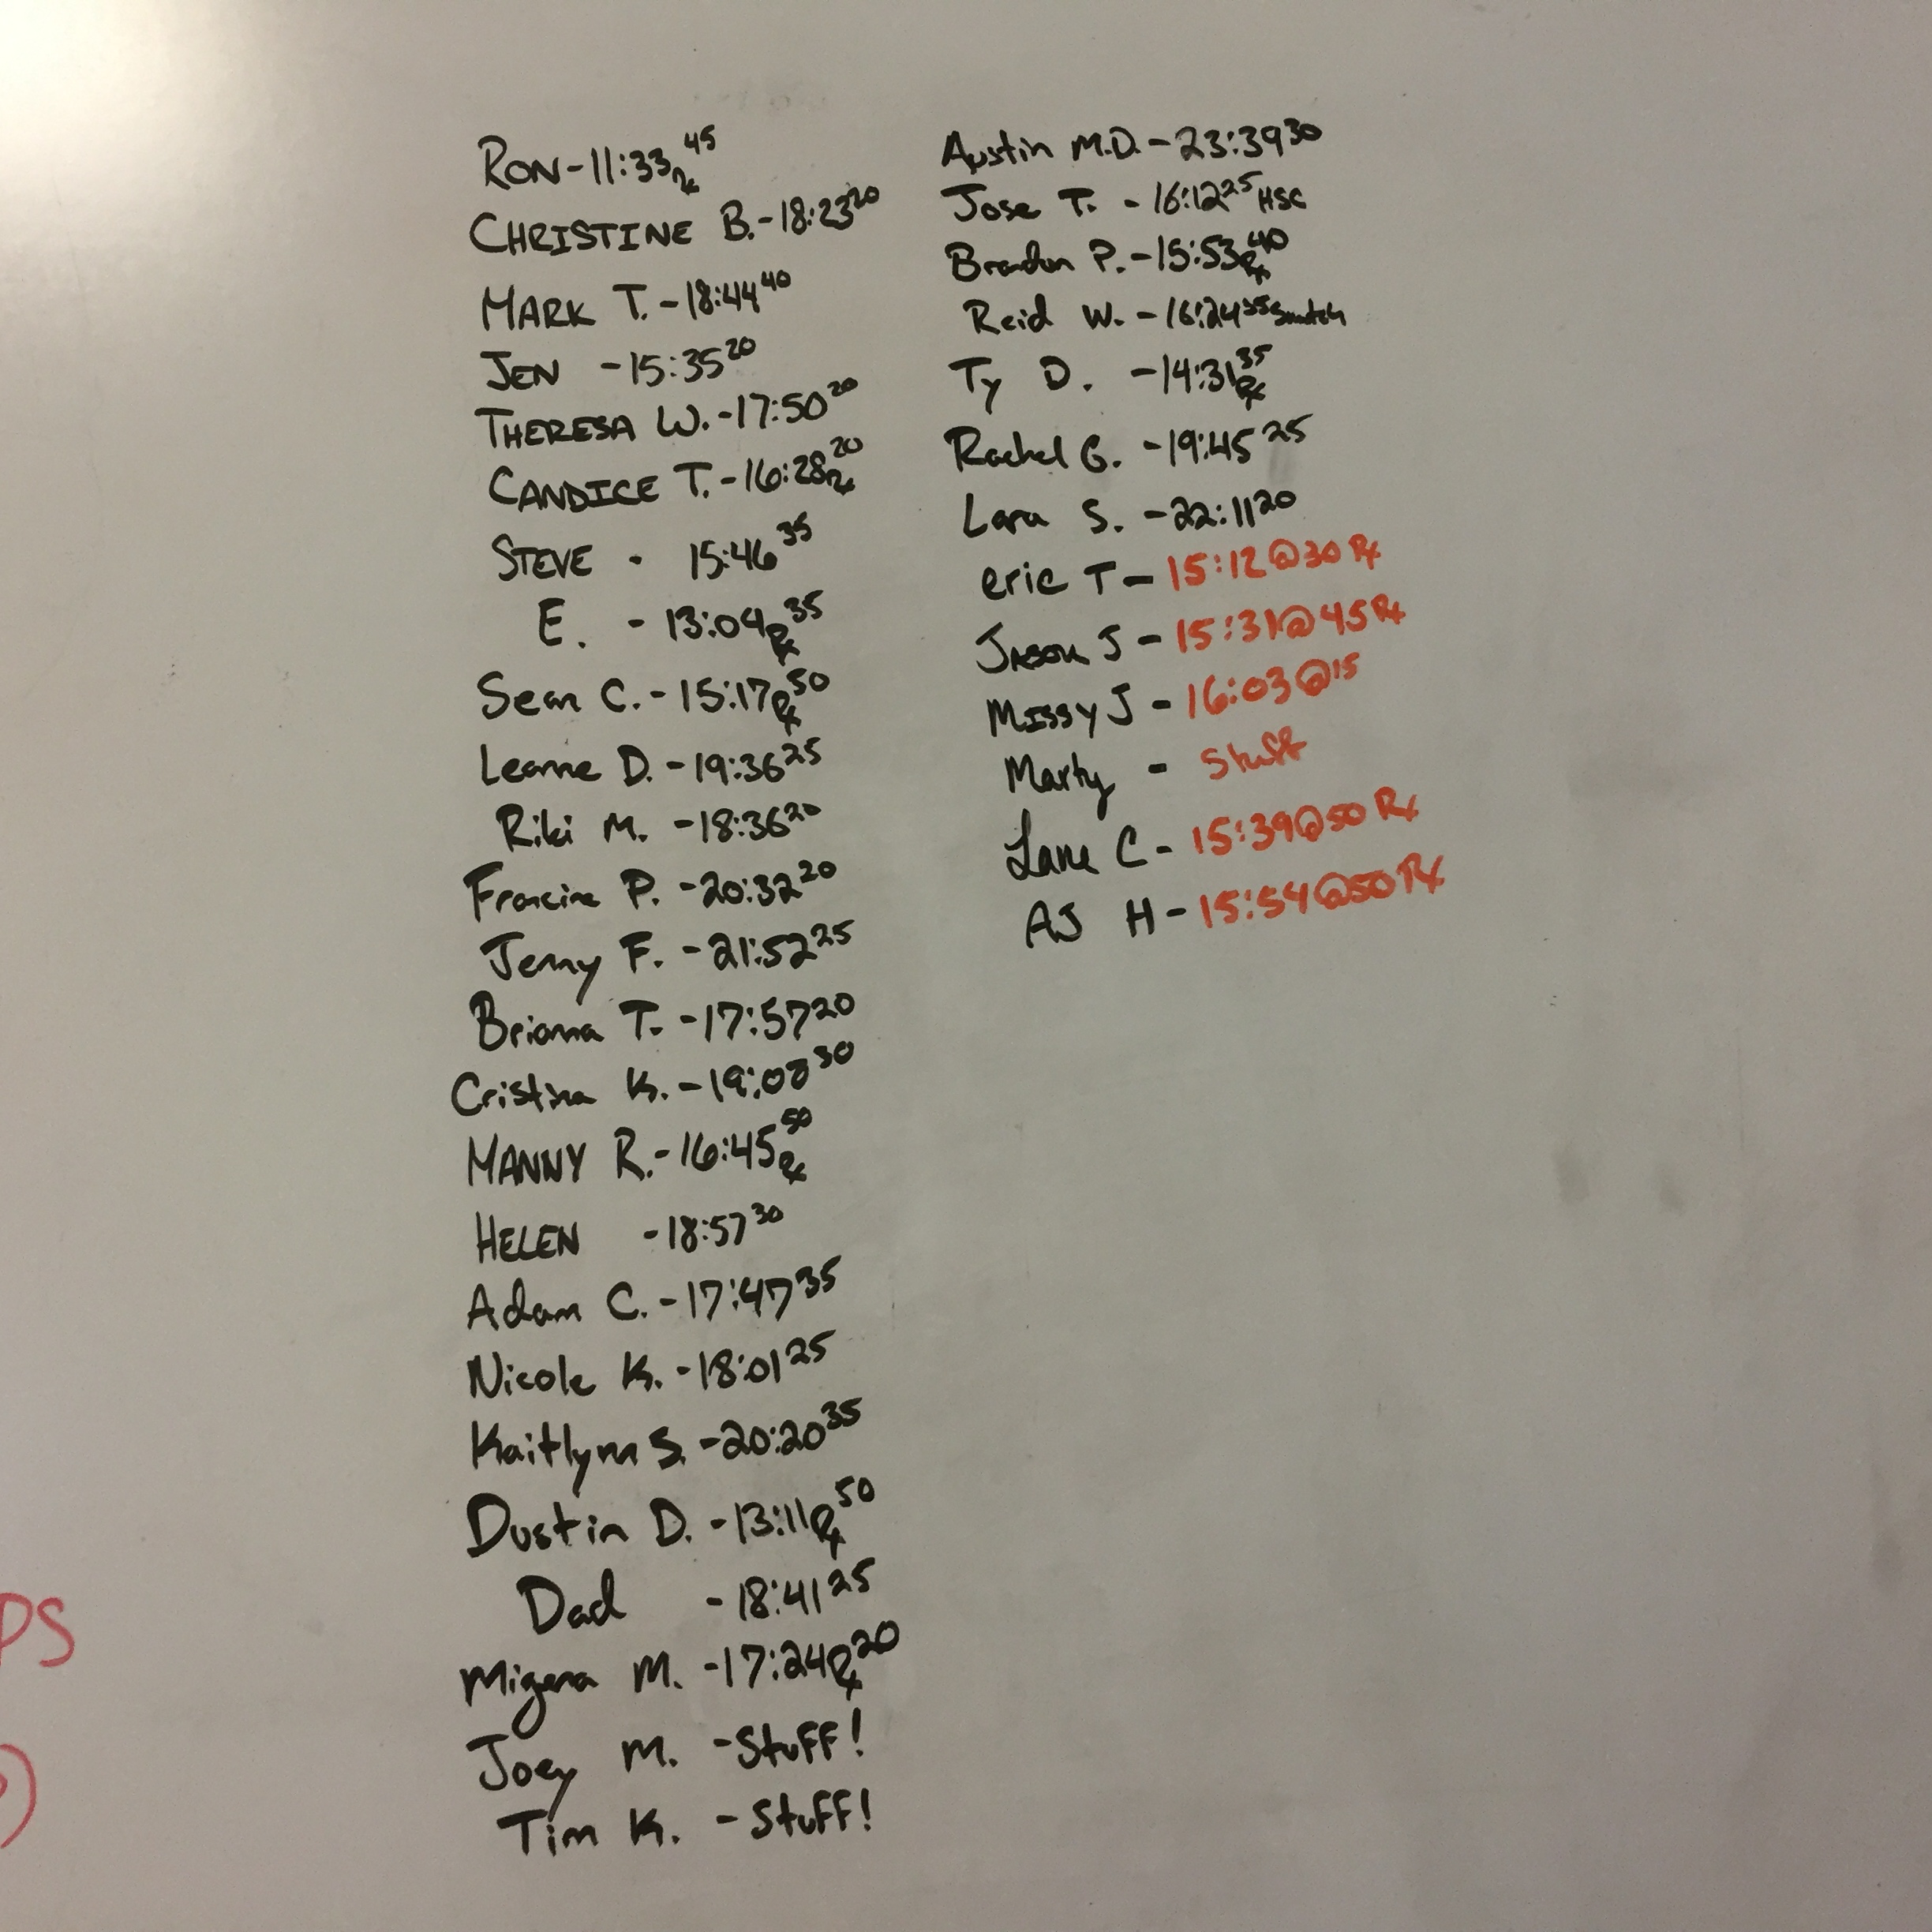 RON-11:33 Rx 45
CHRISTINE B.-18:23 20
MARK T.-18:44 40
JEN -15:35 20
THERESA W.-17:50 20
CANDICE T.-16:28 Rx 20
STEVE - 15:46 35
E. - 13:04 Rx 35
Sean C.-15:17 Rx 50
Leanne D.-19:36 25
Riki M. -18:36 20
Francine P. -20:32 20
Jenny F. -21:52 25
Brianna T. -17:57 20
Cristina K.-19:08 30
MANNY R.-16:45 Rx 50
HELEN -18:57 30
Adam C.-17:47 35
Nicole K.-18:01 25
Kaitlynn S.-20:20 35
Dustin D. -13:11 Rx 50
Dad -18:41 25
Migena M. -17:24 Rx 20
Joey M. -Stuff!
Tim K. -Stuff!
Austin M.D.-23:39 30
Jose T. -16:12 25 HSC
Brandon P.-15:53 Rx 40
Reid W.-16:24 35 Snatch
Ty D. -14:31 Rx 35
Rachel G. -19:45 25
Lara S. -22:11 20
eric T- 15:12@30 Rx
JASON J - 15:31@45 Rx
MISSY J - 16:03@15
Marty - Stuff
Lane C- 15:39@50 Rx
AJ H- 15:54@50 Rx
PS
)